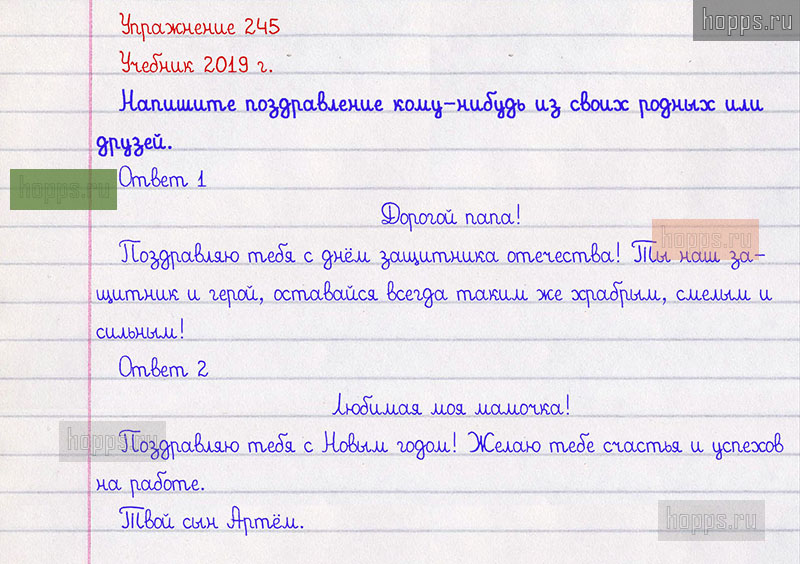 hopps.ru
Упражнение 245
Учебник 2019 г.
Напишите поздравление кому-нибудь из своих родных или
друзей.
Ответ 1
hopps.ru
Дорогой папа!
hopps.ru
Поздравляю тебя с днём защитника отечества! Ты наш за-
щитник и герой, оставайся всегда таким же храбрым, смелым и
сильным!
Ответ 2
Любимая моя мамочка!
hopps.ru
Поздравляю тебя с Новым годом! Желаю тебе счастья и успехов
на работе.
hopps.ru
Твой сын Артём.